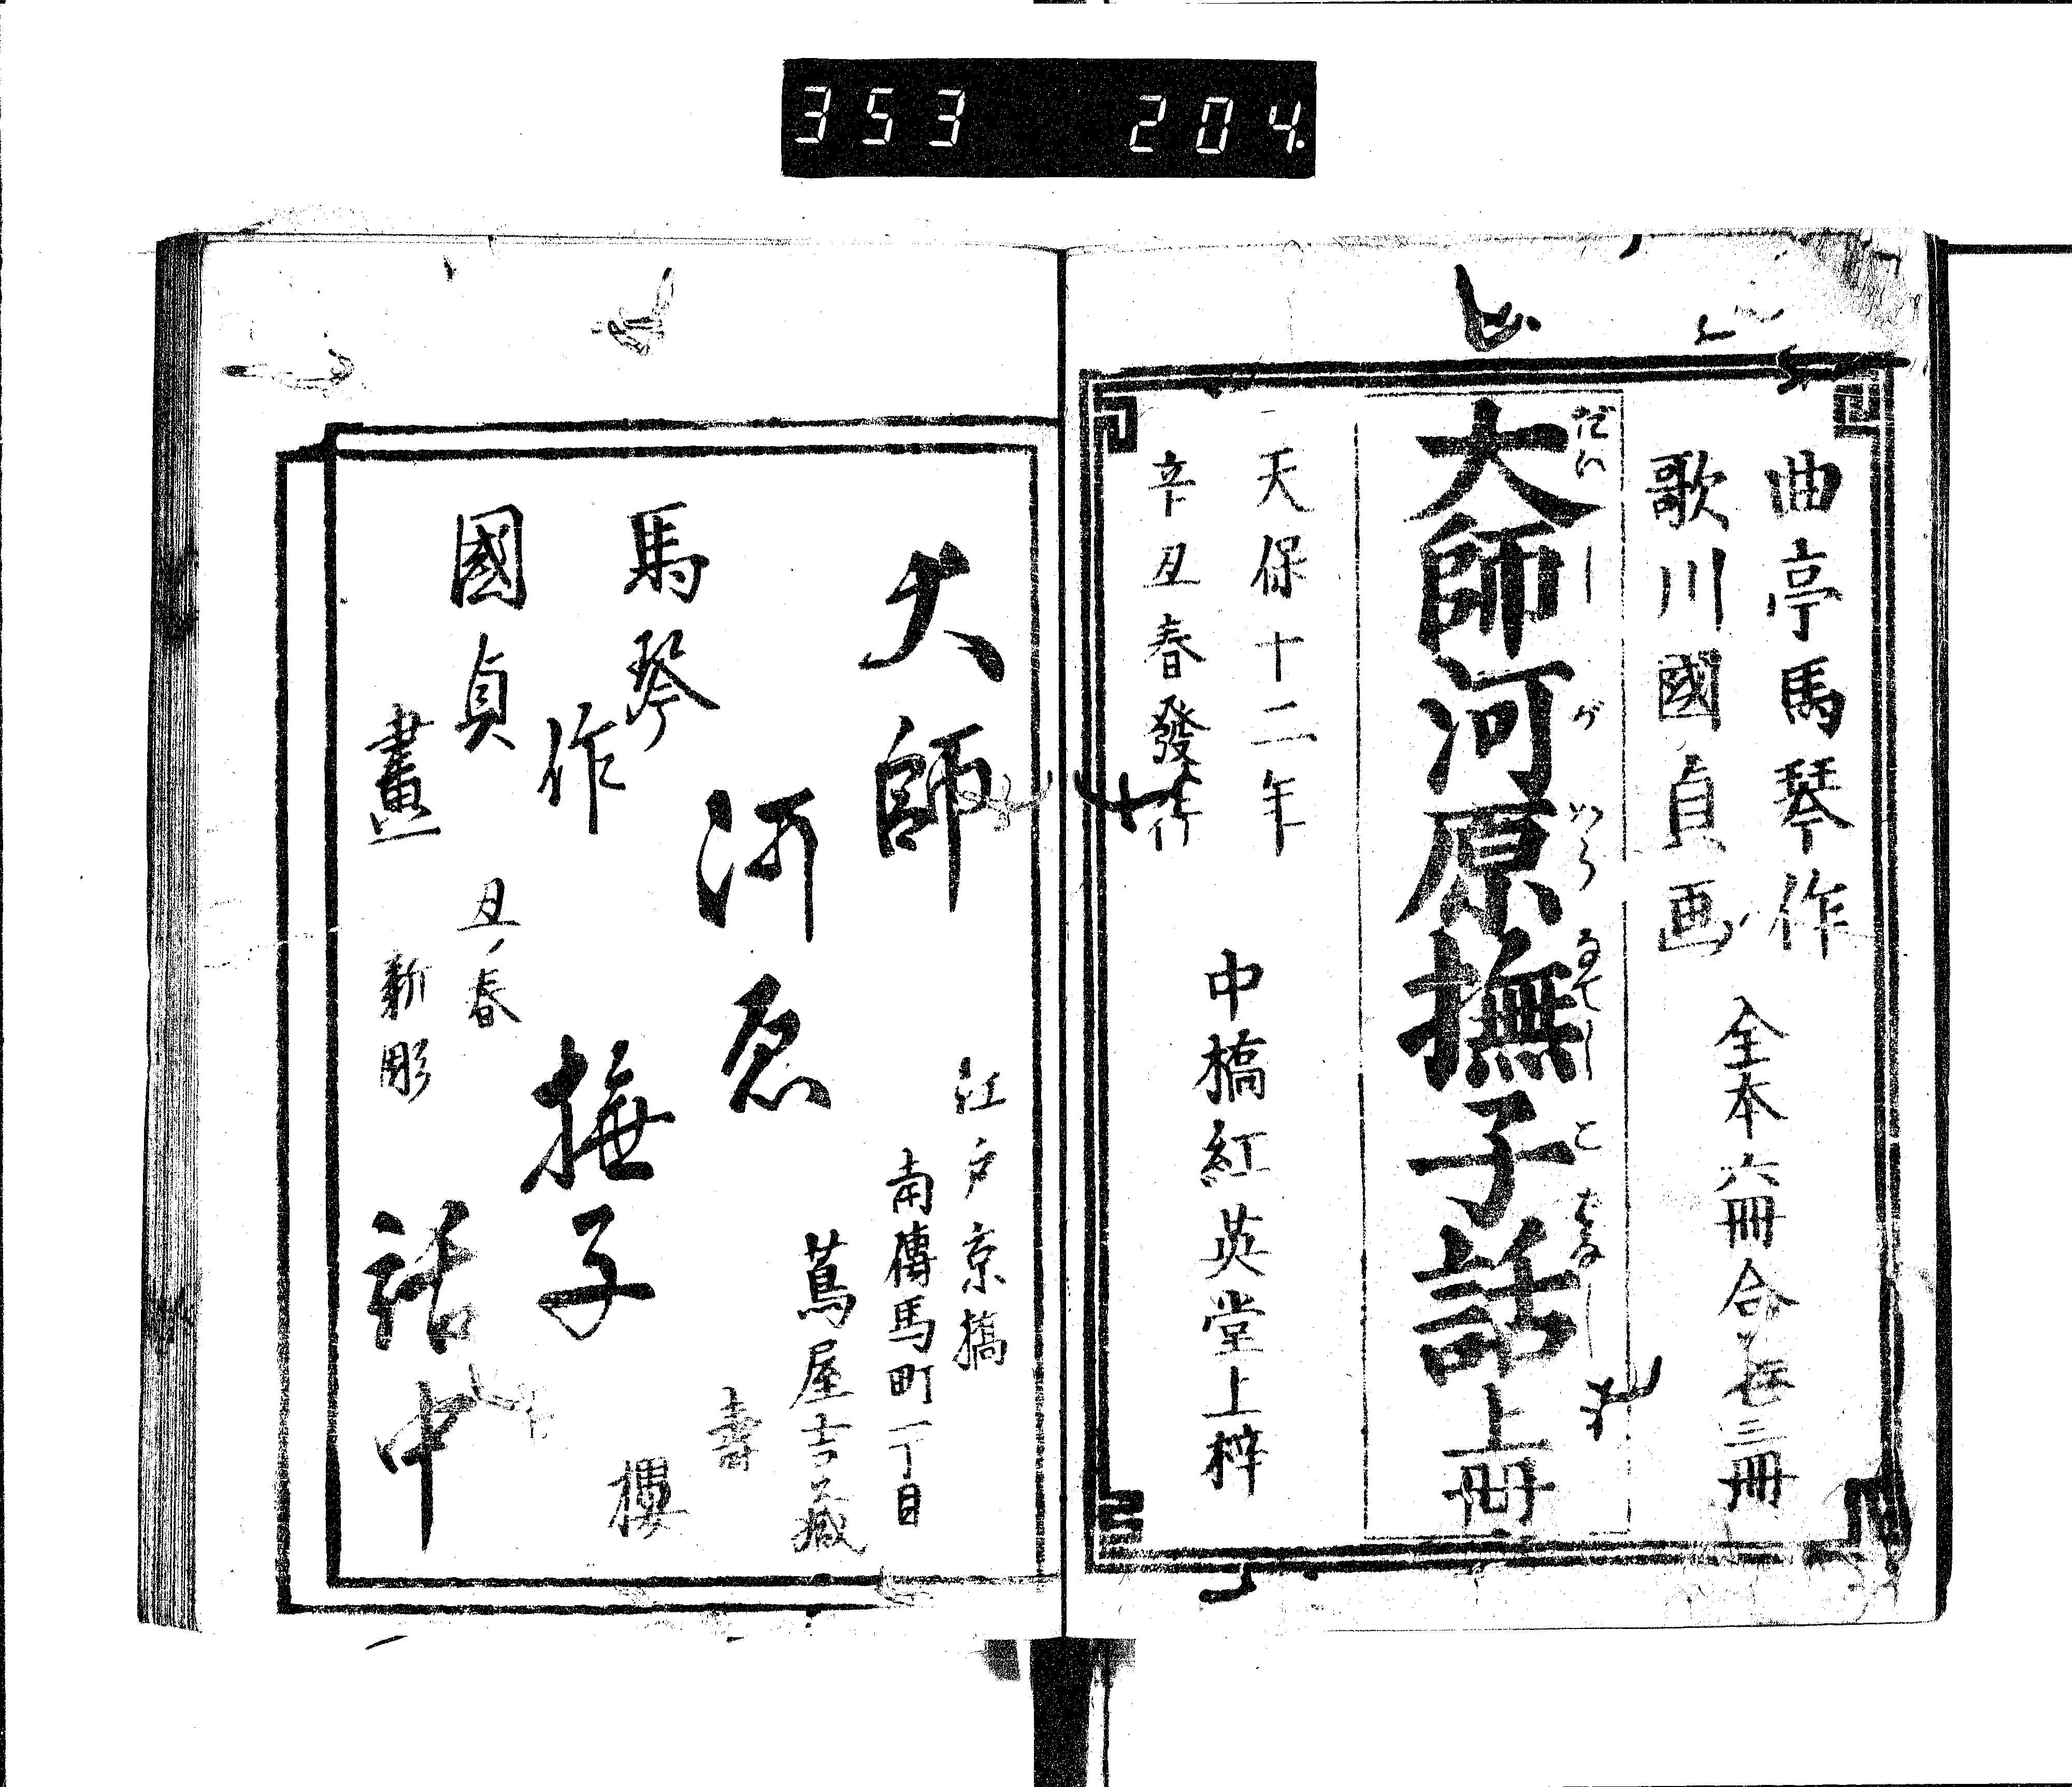 353 204.
曲亭馬琴作
歌川國貞画
全本六冊合巻三冊
大師河原撫子話上冊
だいしがはらなでしこばなし
天保十二年
辛丑春發行
中橋紅英堂上梓
大師
河原
撫子
話中
馬琴
作
國貞
畫
丑ノ春
新彫
江戸京橋
南傳馬町一丁目
蔦屋吉藏
壽
樓